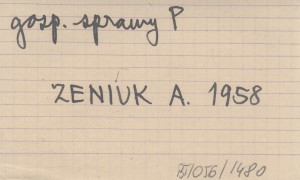 gosp. sprawy P
ZENIUK A. 1958
/1480